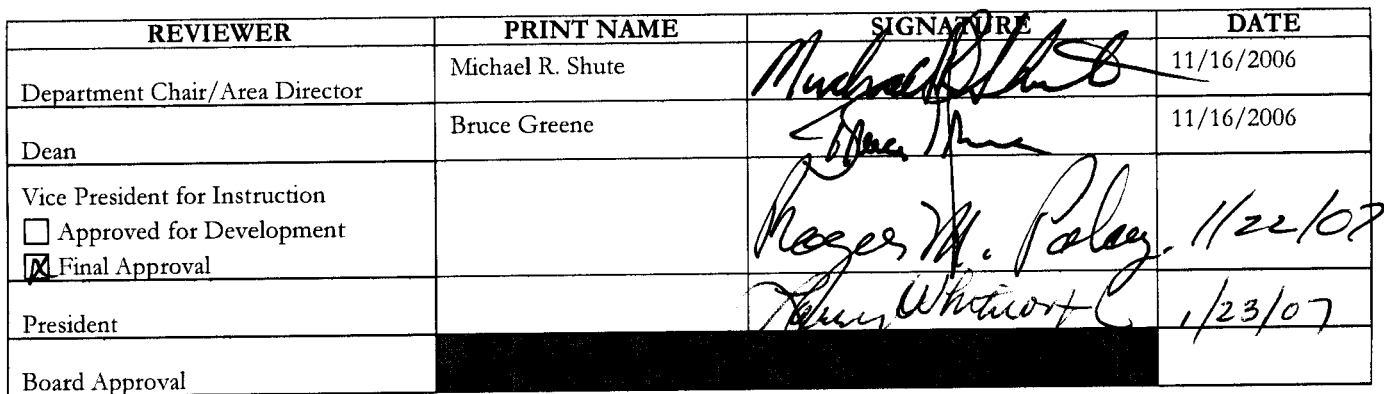 REVIEWER PRINT NAME SIGNATURE DATE
Department Chair/Area Director Michael R. Shute Michael R Shute 11/16/2006
Dean Bruce Greene Bruce 11/16/2006
Vice President for Instruction
Approved for Development
Final Approval Roger M. 1/22/07
President Whitworth 1/23/07
Board Approval